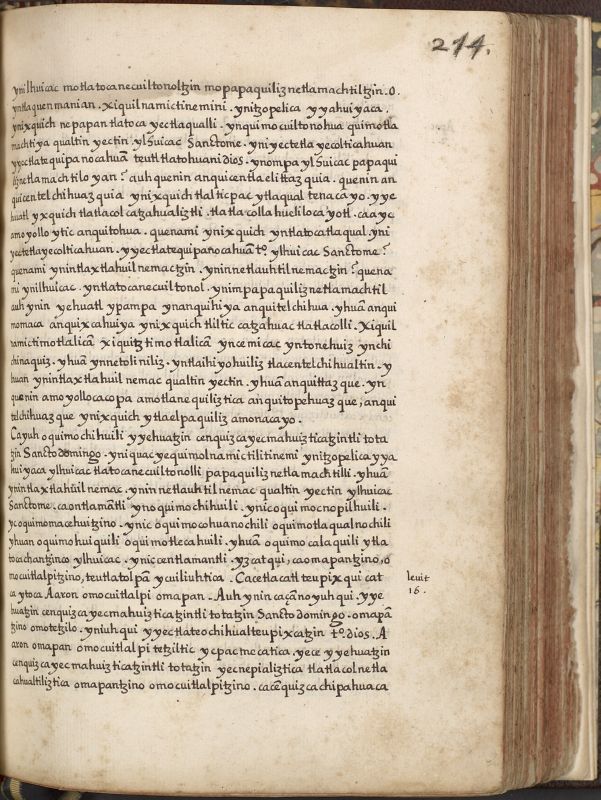 214.
ynilhuicac motlatocanecuiltonoltzin mopapaquiliznetlamachtiltzin. O.
yntlaquenmanian. xiquilnamictinemini. ynitzopelica yyahuiyaca.
ynixquich nepapantlatoca yectlaqualli. ynquimocuiltonohua quimotla
machtiya qualtin yectin ylhuicac Sanctome. yniyectetla yecolticahuan
yyectlatequipanocahuā teutl tlatohuani dios. ynompa ylhuicac papaqui
liznetlamachtiloyan? auh quenin anquicentlaelittazquia. quenin an
quicentelchihuazquia ynixquich tlalticpac ytlaqualtenacayo. yye
huatl yxquich tlatlacolcatzahualiztli. tlatlacollahuelilocayotl. caayc
amoyolloytic anquitohua. quenami ynixquich yntlatocatlaqual yni
yectetlayecolticahuan. yyectlatequipanocahuan tº. ylhuicac Sanctome?
quenami ynintlaxtlahuilnemactzin. yninnetlauhtilnemactzin? quena
mi ynilhuicac. yntlatocanecuiltonol. ynimpapaquiliznetlamachtil
auh ynin yehuatl ypampa ynanquihiya anquitelchihua. yhuā anqui
momaca anquixcahuiya ynixquich tliltic catzahuac tlatlacolli. Xiquil
namictimotlalicā xiquitztimotlalicā yncemicac yntonehuiz ynchi
chinaquiz. yhuā ynnetoliniliz. yntlaihiyohuiliz tlacentelchihualtin. y
huan ynintlaxtlahuilnemac qualtin yectin. yhuā anquittazque. yn
quenin amoyollocacopa amotlanequiliztica anquitopehuazque, anqui
telchihuazque ynixquich ytlaelpaquiliz amonacayo.
Cayuh oquimochihuili yyehuatzin cenquizcayecmahuizticatzintli tota
tzin Sancto domingo. yniquac yequimolnamictilitinemi ynitzopelica yya
huiyaca ylhuicac tlatocanecuiltonolli papaquiliznetlamachtilli. yhuā
ynintlaxtlahuilnemac. yninnetlauhtilnemac qualtin yectin ylhuicac
Sanctome. caontlamātli ynoquimochihuili. ynicoquimocnopilhuili.
ycoquimomacehuitzino. ynic oquimocohuanochili oquimotlaqualnochili
yhuan oquimohuiquili oquimotlecahuili. yhuā oquimocalaquili ytla
tocachantzinco ylhuicac. yniccentlamantli. yzcatqui, caomapantzino, o
mocuitlalpitzino, teutlatolpā ycuiliuhtica. Cacetlacatl teupixqui cat
ca ytoca Aaron omocuitlalpi omapan. Auh ynin caçānoyuhqui. yye
huatzin cenquizcayecmahuizticatzintli totatzin Sancto domingo. omapā
tzino omotetzilo. yniuhqui yyectlateochihualteupixcatzin tº. dios. A
aron omapan omocuitlalpi tetziltic ycpacmecatica. yece yyehuatzin
cenquizcayecmahuizticatzintli totatzin yecnepializtica tlatlacolnetla
cahualtiliztica omapantzino omocuitlalpitzino. cacēquizcachipahuaca
levit
16.